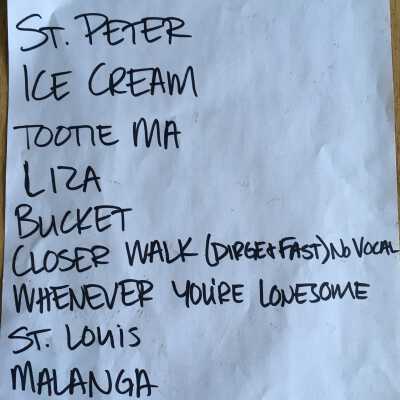 ST. PETER
ICE CREAM
TOOTIE MA
LIZA
BUCKET
CLOSER WALK (DIRGE & FAST) NO VOCAL
WHENEVER YOU'RE LONESOME
ST. LOUIS
MALANGA